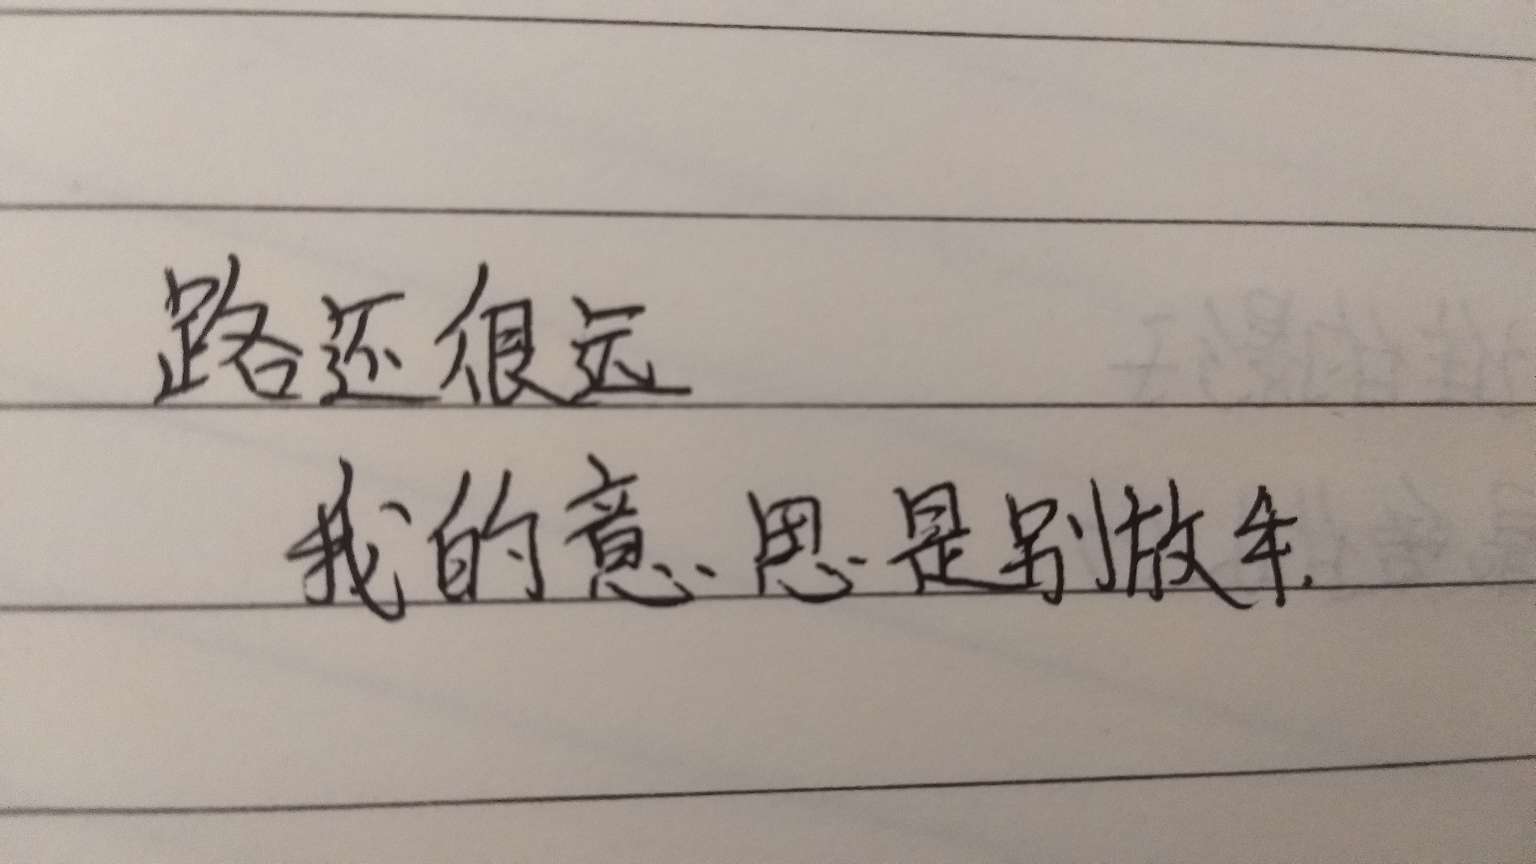 路还很远
我的意思是别放